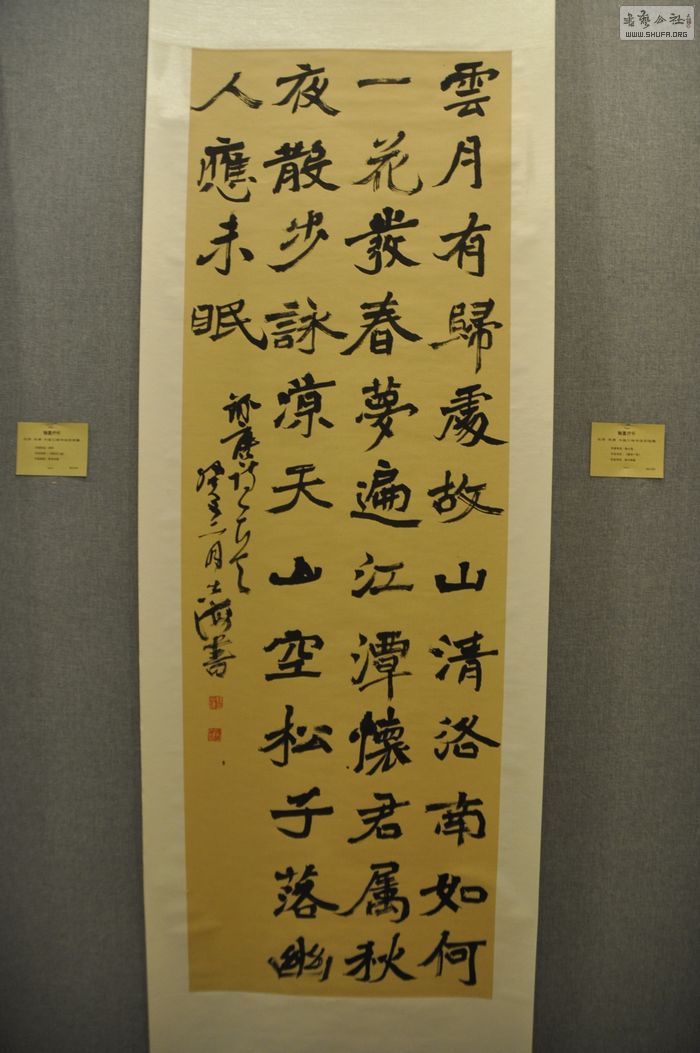 雲月有歸處故山清洛南如何
一花發春夢遍江潭懷君属秋
夜散步詠涼天山空松子落幽
人應未眠
癸巳二月志海書
WWW.SHUFA.ORG